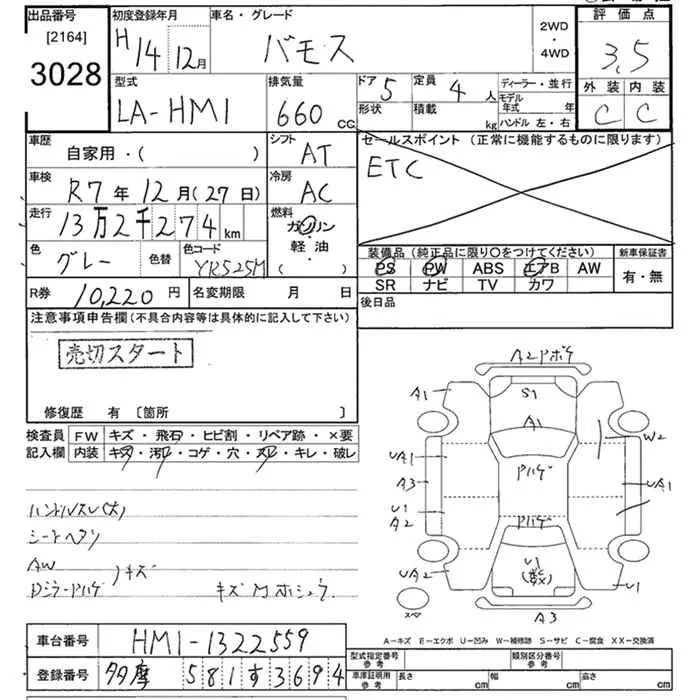 出品番号
[2164]
3028
初度登録年月
H14年12月
車名・グレード
バモス
2WD
・
4WD
評価点
3.5
外装 内装
C C
型式
LA-HM1
排気量
660 cc
ドア 5
定員 4 人
ディーラー・並行
形状
積載 kg
モデル年式 年
ハンドル 左・右
車歴
自家用・( )
シフト
AT
セールスポイント (正常に機能するものに限ります)
ETC
車検
R7年12月(27日)
冷房
AC
走行
13万2千274km
燃料
ガソリン
・
軽・油
( )
色
グレー
色替
色コード
YR525M
装備品 (純正品に限り〇をつけてください)
PS PW ABS エアB AW
SR ナビ TV カワ
新車保証書
有・無
R券 10,220円
名変期限 月 日
後日品
注意事項申告欄 (不具合内容等は具体的に記入して下さい)
売切スタート
修復歴 有 〔箇所 〕
検査員
記入欄
FW キズ・飛石・ヒビ割・リペア跡・×要
内装 キズ・汚レ・コゲ・穴・スレ・キレ・破レ
ハンドルスレ(大)
シートヘタリ
AW
キズ
Dミラーハゲ
キズ
A2アポケ
A1
S1
A1
W2
UA1
ハゲ
A3
UA1
U1
A2
ハゲ
UA2
U1
(数)
U1
A3
A-キズ E-エクボ U-凹み W-補修跡 S-サビ C-腐食 XX-交換済
車台番号
HM1-1322559
登録番号
多摩 581す3694
型式指定番号
参考
類別区分番号
参考
車庫証明用
参考
長さ cm
幅 cm
高さ cm